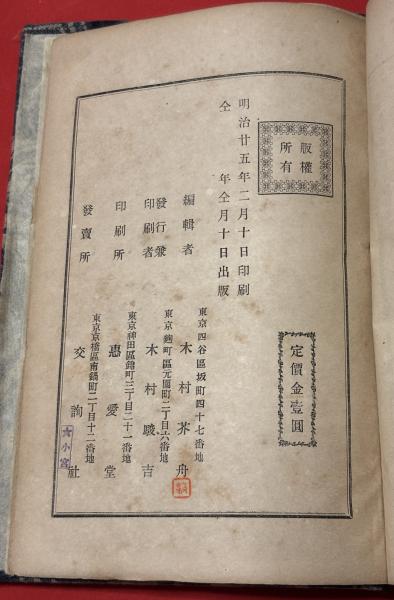 版權
所有
定價金壹圓
明治廿五年二月十日印刷
仝　年仝月十日出版
東京四谷區坂町四十七番地
編輯者　木村芥舟
東京麴町區元園町二丁目六番地
發行兼
印刷者　木村駿吉
東京神田區錦町三丁目二十一番地
印刷所　惠愛堂
東京京橋區南鍋町二丁目十二番地
發賣所　交詢社
大小宮